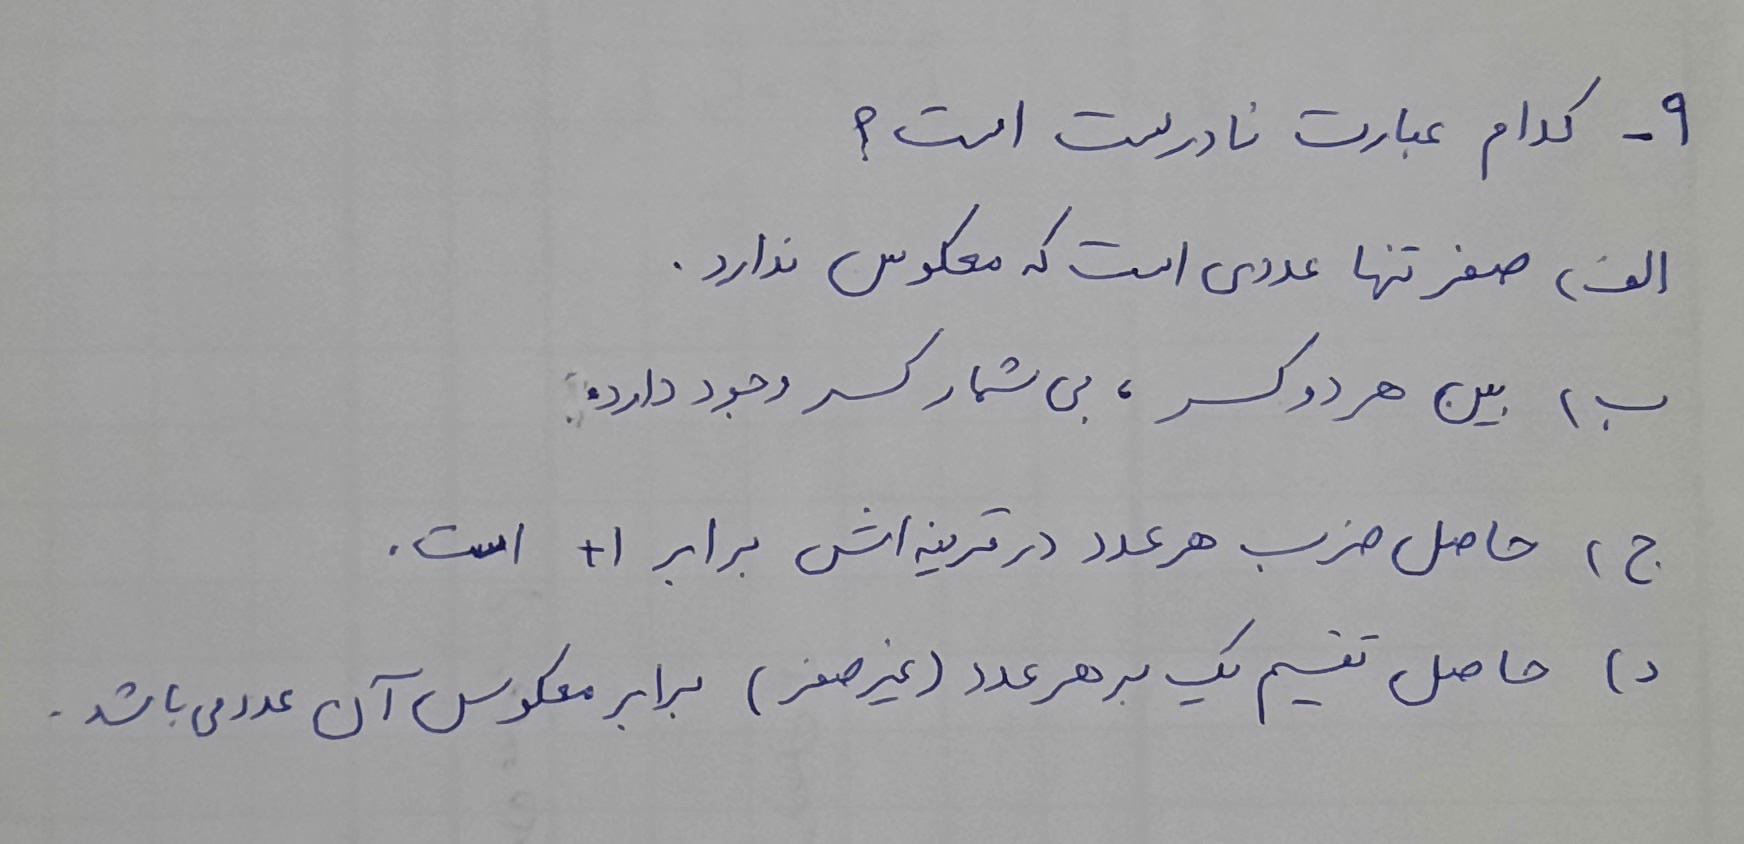 ۹- کدام عبارت نادرست است؟
الف) صفر تنها عددی است که معکوس ندارد.
ب) بین هر دو کسر ، بی شمار کسر وجود دارد.
ج) حاصل ضرب هر عدد در قرینه اش برابر +۱ است.
د) حاصل تقسیم یک بر هر عدد (غیر صفر) برابر معکوس آن عدد می باشد.